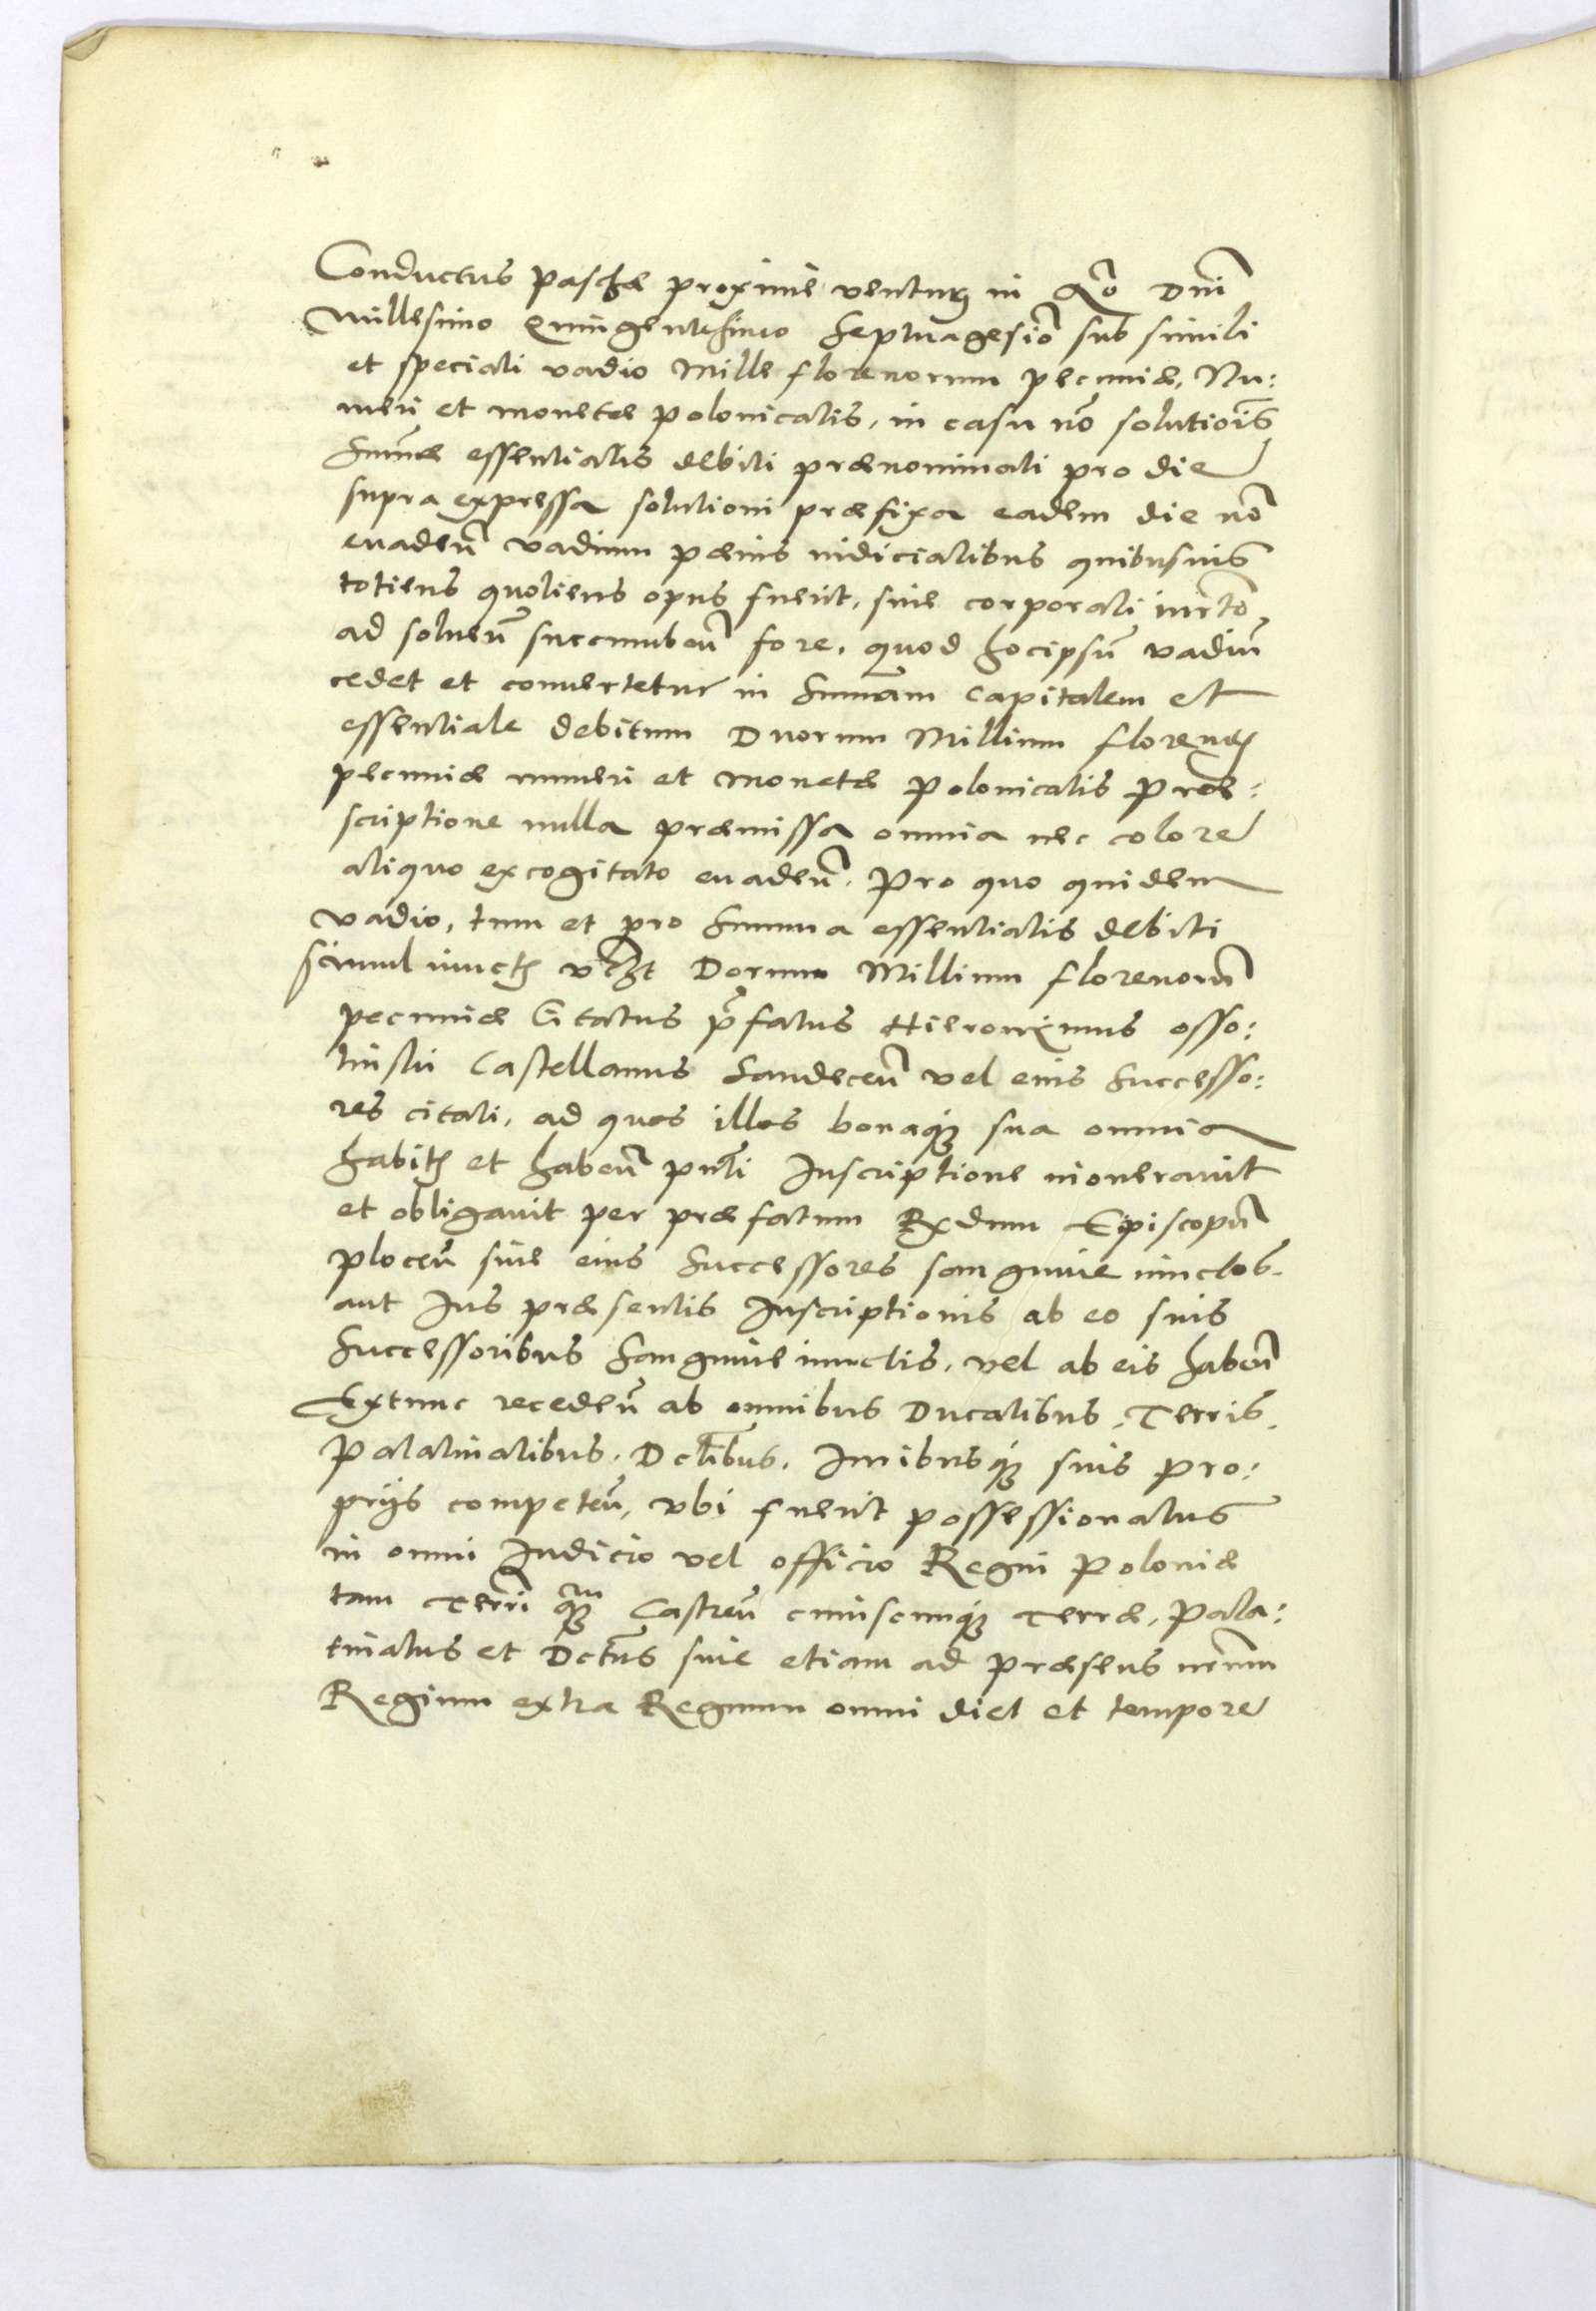 Conductus Paschæ proxime ventur in Ao Dni
Millesimo Quingentesimo Septuagesio sub simili
et speciali vadio Mille florenorum pecuniæ, Nu:
meri et monetæ polonicalis, in casu no solutiois
Summæ essentialis debiti prænominati pro die
supra expressa solutioni præfixa eadem die no
euadeñ vadium pænis iudicialibus quibusuis
totiens quotiens opus fuerit, sine corporali iurto
ad solueñ succumbeñ fore, quod hocipsu vadiu
cedet et conuertetur in Summam capitalem et
essentiale debitum Duorum Millium floren
pecuniæ numeri et monetæ Polonicalis Præ:
scriptione nulla præmissa omnia nec colore
aliquo excogitato euadeñ. Pro quo quidem
vadio, tum et pro Summa essentialis debiti
simul iunct vczt Dorum Millium florenoru
pecuniæ Citatus pfatus Hieronimus Osso:
linski Castellanus Sandeceñ vel eius Successo:
res citati, ad quos illos bonaq sua omnia
habit et habeñ pnti Inscriptione inonerauit
et obligauit per præfatum Rxdum Episcopu
ploceñ siue eius Successores sanguine iunctos
aut Ius præsentis Inscriptionis ab eo suis
Successoribus Sanguine iunctis, vel ab eis habeñ
Extunc recedeñ ab omnibus Ducalibus, Terris,
Palatinatibus, Dctibus, Iuribusq suis pro:
prijs competeñ, vbi fuerit possessionatus
in omni Iudicio vel officio Regni Poloniæ
tam Terri qm Castreñ cuiuscunq Terræ, Pala:
tinatus et Dctus siue etiam ad præsens nrmm
Regium extra Regnum omni diet et tempore